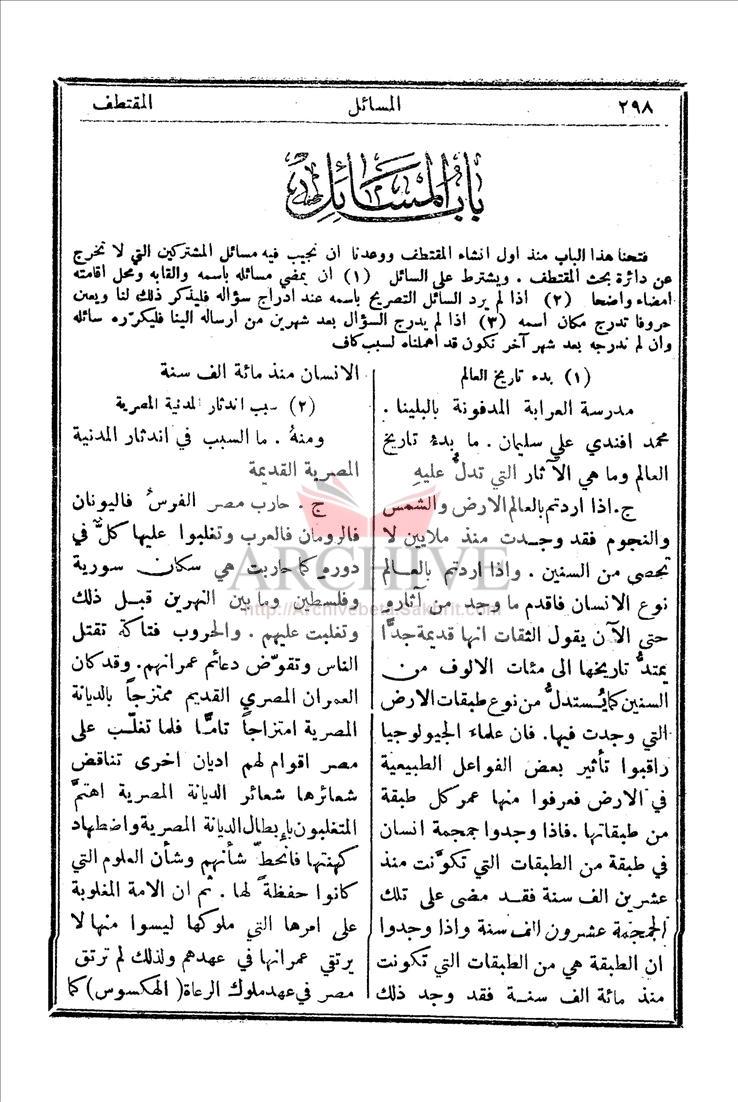 ٢٩٨ المسائل المقتطف
باب المسائل
فتحنا هذا الباب منذ اول انشاء المقتطف ووعدنا ان نجيب فيه مسائل المشتركين التي لا تخرج
عن دائرة بحث المقتطف . ويشترط على السائل (١) ان يمضي مسائله باسمه والقابه ومحل اقامته
امضاء واضحا (٢) اذا لم يرد السائل التصريح باسمه عند ادراج سؤاله فليذكر ذلك لنا ويعين
حروفا تدرج مكان اسمه (٣) اذا لم يدرج السؤال بعد شهرين من ارساله الينا فليكرّره سائله
وان لم ندرجه بعد شهر آخر نكون قد اهملناه لسبب كاف
(١) بدء تاريخ العالم
مدرسة العرابة المدفونة بالبلينا .
محمد افندي علي سليمان . ما بدءُ تاريخ
العالم وما هي الآثار التي تدلُّ عليهِ
ج . اذا اردتم بالعالم الارض والشمس
والنجوم فقد وجدت منذ ملايين لا
تحصى من السنين . واذا اردتم بالعالم
نوع الانسان فاقدم ما وجد من آثارهِ
حتى الآن يقول الثقات انها قديمة جدًّا
يمتدُّ تاريخها الى مئات الالوف من
السنين كما يُستدلُّ من نوع طبقات الارض
التي وجدت فيها. فان علماء الجيولوجيا
راقبوا تأثير بعض الفواعل الطبيعية
في الارض فعرفوا منها عمر كل طبقة
من طبقاتها .فاذا وجدوا جمجمة انسان
في طبقة من الطبقات التي تكوَّنت منذ
عشرين الف سنة فقد مضى على تلك
الجمجمة عشرون الف سنة واذا وجدوا
ان الطبقة هي من الطبقات التي تكونت
منذ مائة الف سنة فقد وجد ذلك
الانسان منذ مائة الف سنة
(٢) سبب اندثار المدنية المصرية
ومنهُ . ما السبب في اندثار المدنية
المصرية القديمة
ج . حارب مصر الفرسُ فاليونان
فالرومان فالعرب وتغلبوا عليها كلٌّ في
دورهِ كما حاربت هي سكان سورية
وفلسطين وما بين النهرين قبل ذلك
وتغلبت عليهم . والحروب فتاكة تقتل
الناس وتقوّض دعائم عمرانهم. وقد كان
العمران المصري القديم ممتزجاً بالديانة
المصرية امتزاجاً تامًّا فلما تغلّب على
مصر اقوام لهم اديان اخرى تناقض
شعائرها شعائر الديانة المصرية اهتمَّ
المتغلبون بإبطال الديانة المصرية واضطهاد
كهنتها فانحطّ شأنهم وشأن العلوم التي
كانوا حفظةً لها . ثم ان الامة المغلوبة
على امرها التي ملوكها ليسوا منها لا
يرتقي عمرانها في عهدهم ولذلك لم ترتق
مصر في عهد ملوك الرعاة (الهكسوس) كما
ARCHIVE